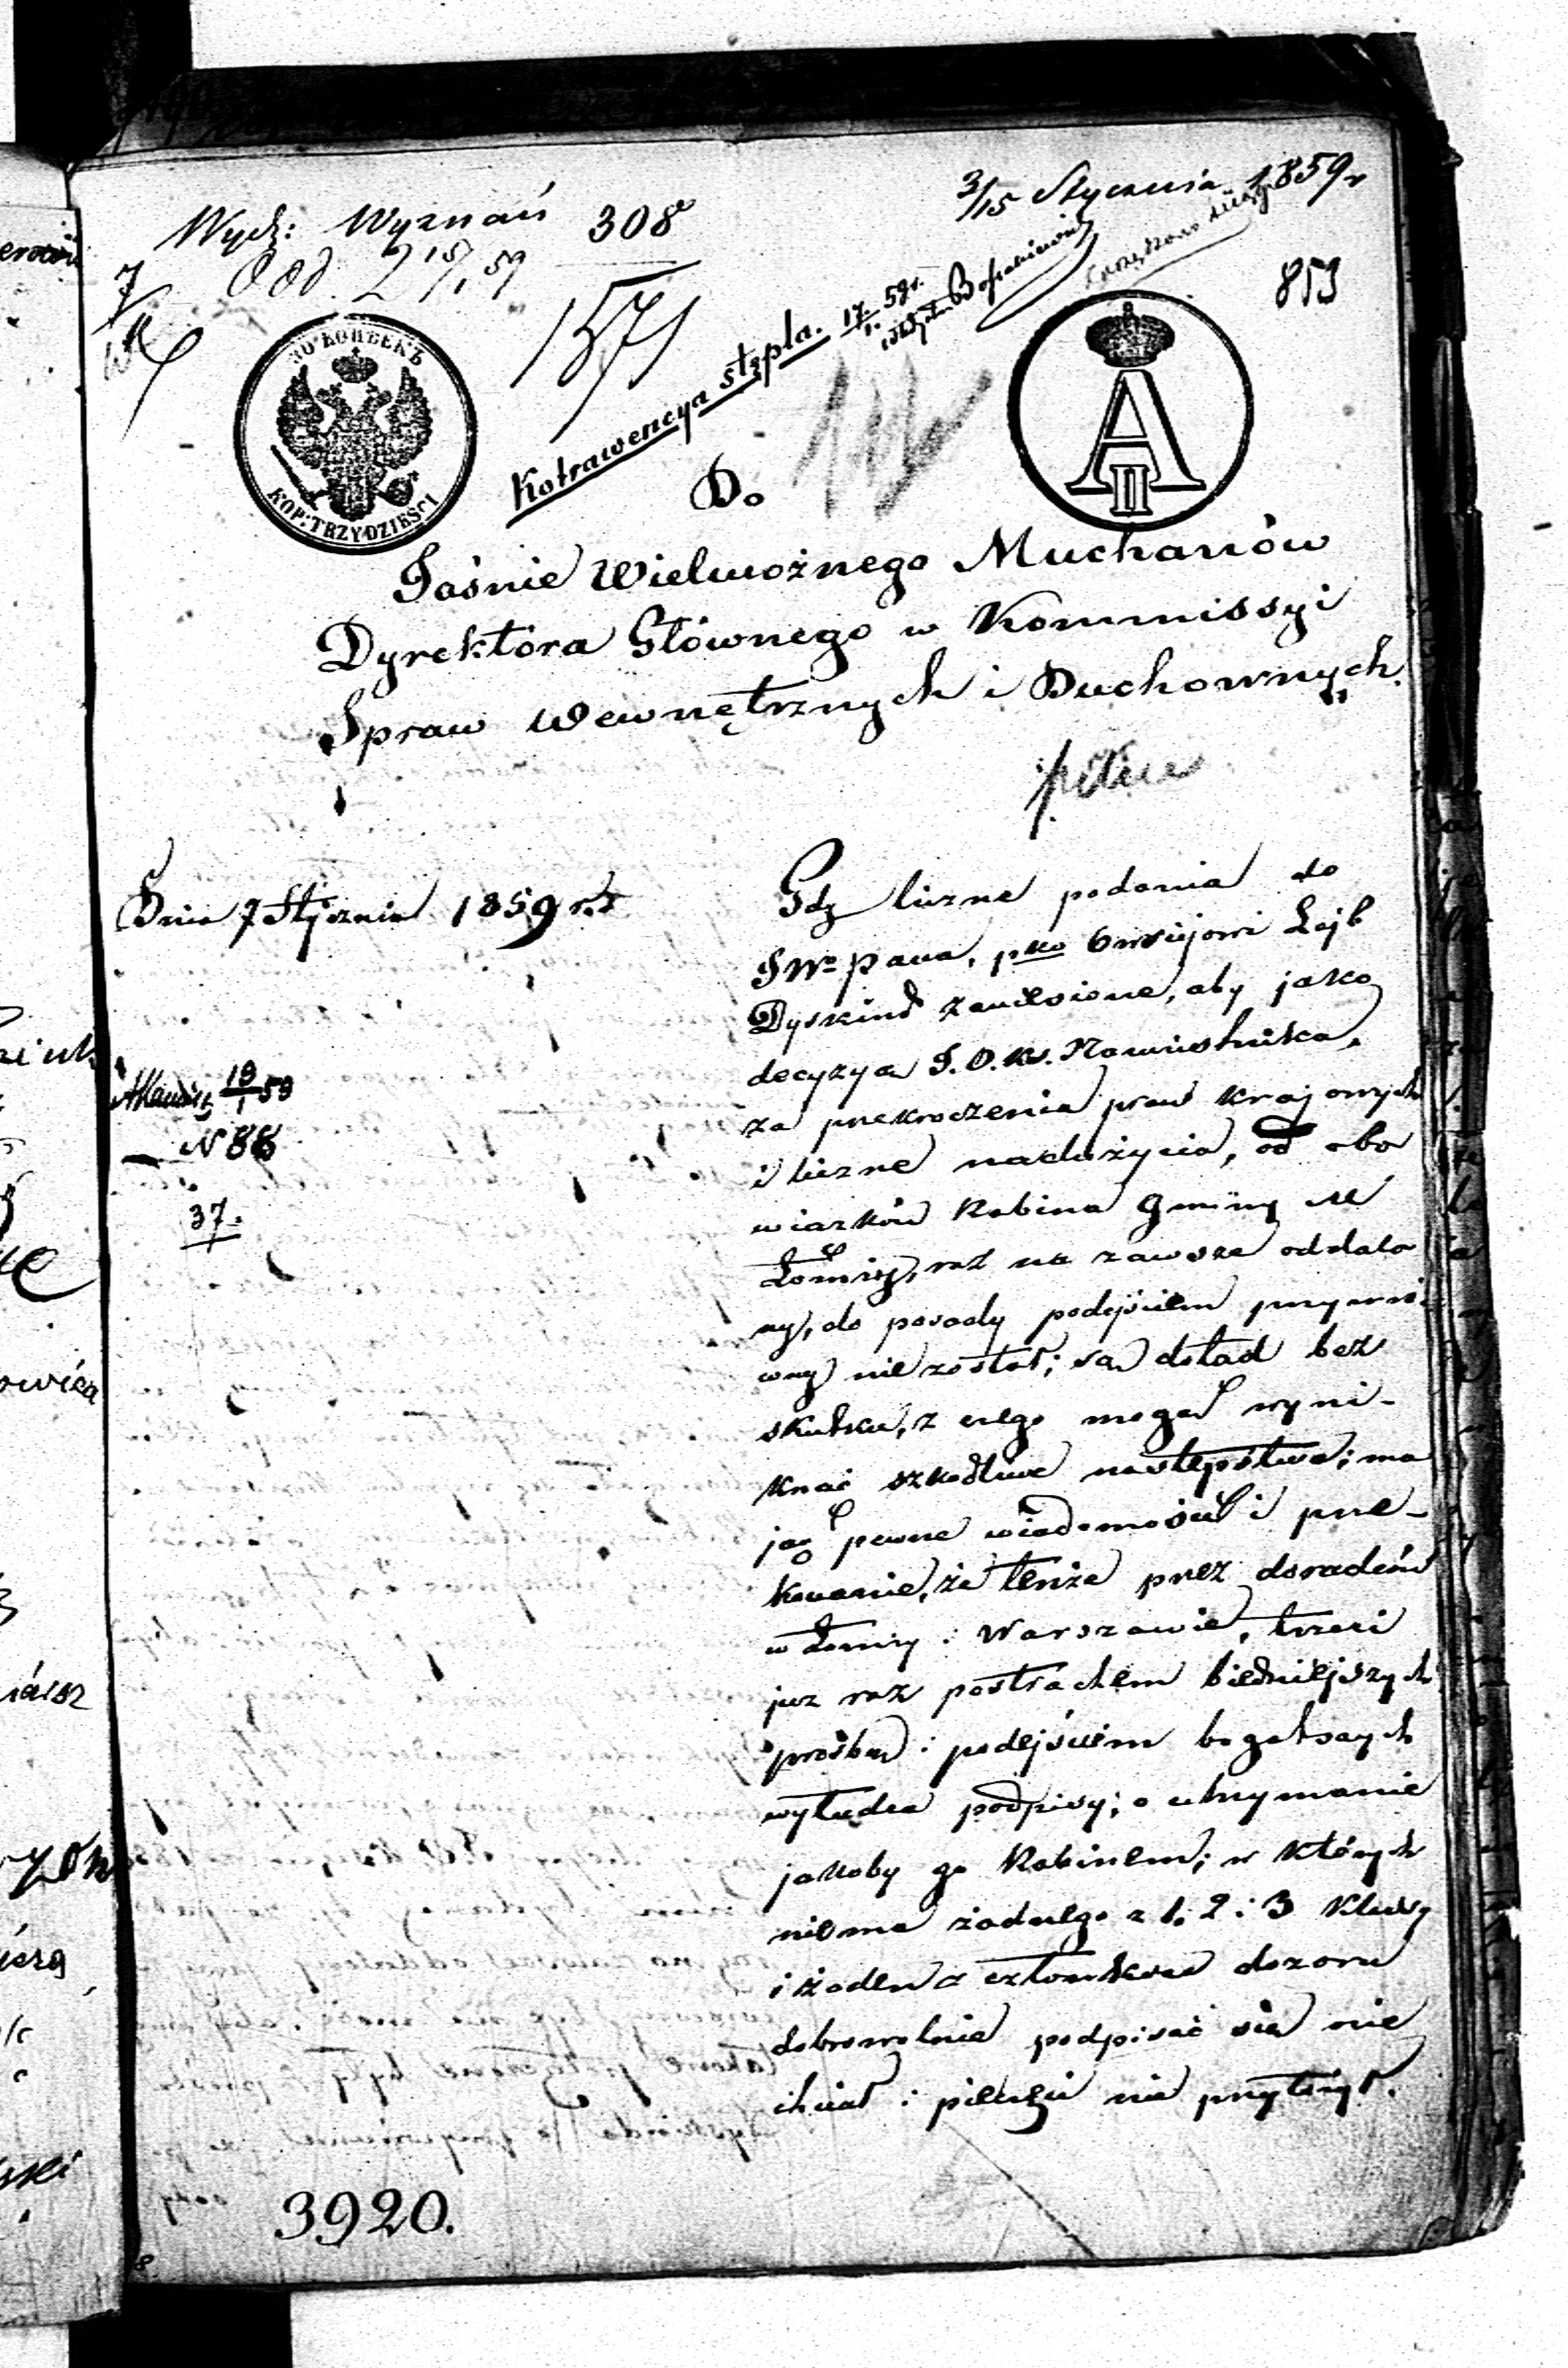 3/15 Stycznia 1859r
Wydz: Wyznań 308
Odd. 2 15/1 59
7
853
1571
Kotrawencya stępla. 17/1. 59r.
30 КОПѢЕКЪ
KOP: TRZYDZIEŚCI
A
II
Do
Jaśnie Wielmożnego Muchanów
Dyrektóra Głównego w Kommissyi
Spraw Wewnętrznych i Duchownych.
pilne
Dnia 7 Stycznia 1859 r.
19/1 59
N 88
37.
Gdy liczne podania do
JWo Pana, pko Owsiejowi Lejb
Dyskind zaniesione, aby jako
decyzyą J. O. Ks. Namiestnika,
za przekroczenia praw krajowych
i liczne nadużycia, od obo
wiązków Rabina Gminy M
Łomży, raz na zawsze oddalo
ny, do posady podejściem przywró
cony nie został; są dotąd bez
skutku, z czego mogą wyni-
knąć szkodliwe następstwa; ma
jąc pewne wiadomości i prze-
konanie, że tenże przez doradców
w Łomży i Warszawie, trzeci
juz raz postrachem biedniejszych
prośbą i podejściem bogatszych
wyłudza podpisy; o utrzymanie
jakoby go Rabinem; w których
niema żadnego z 1. 2 i 3 klassy
i żaden z członków dozoru
dobrowolnie podpisać się nie
chciał i pieczęci nie przyłożył.
3920.